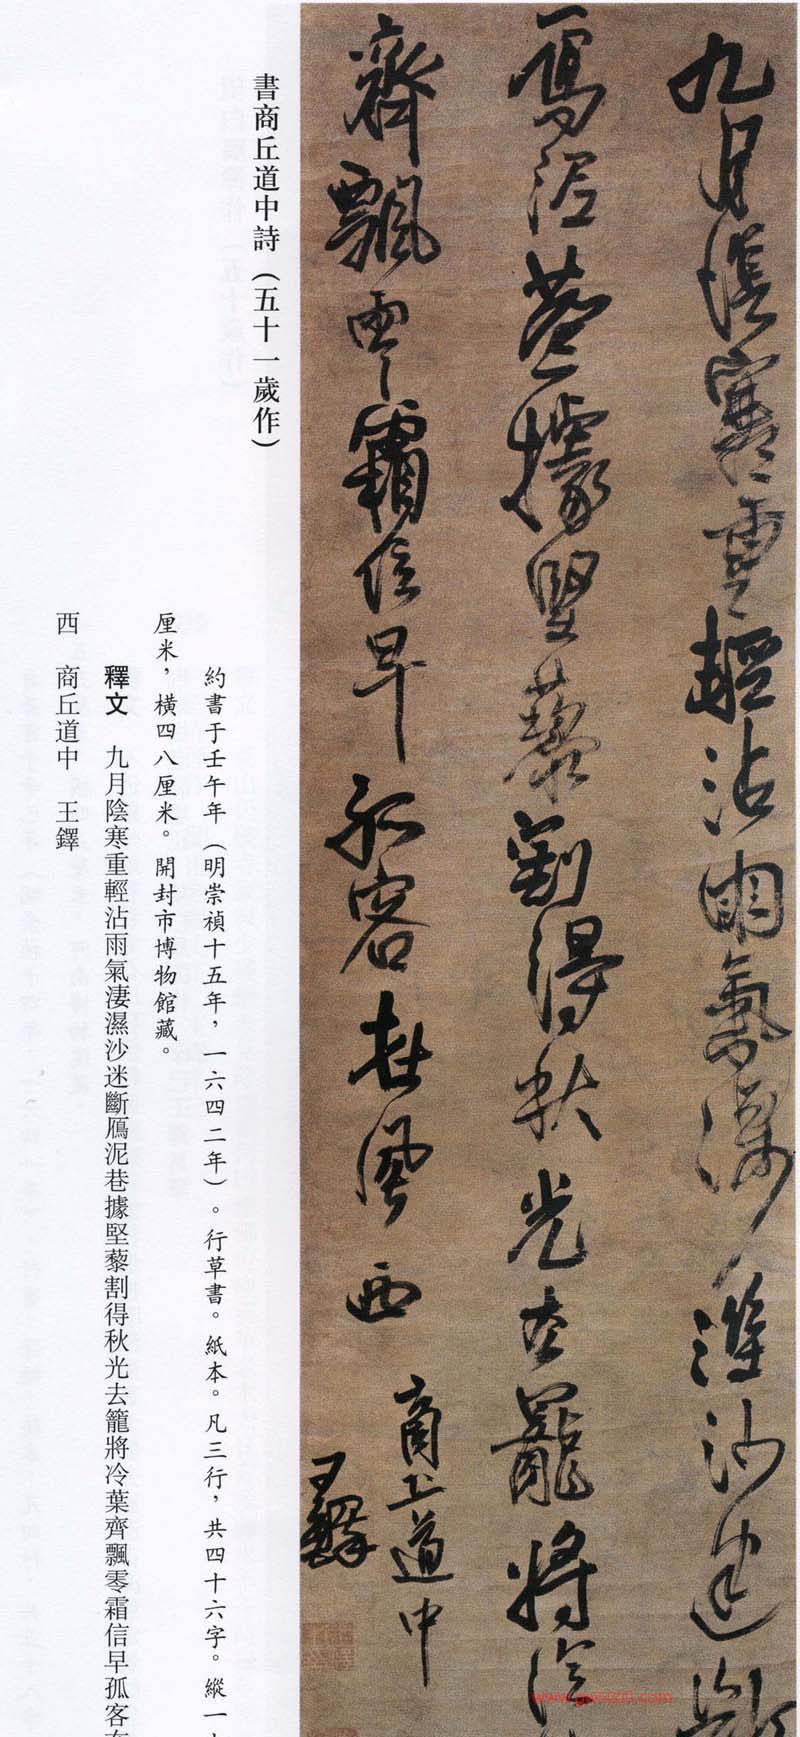 九月陰寒重輕沾雨氣淒濕沙迷斷
鴈泥巷據堅藜割得秋光去籠將冷
齊飄零霜信早孤客在風西
商丘道中
王鐸
書商丘道中詩（五十一歲作）
約書于壬午年（明崇禎十五年，一六四二年）。行草書。紙本。凡三行，共四十六字。縱一
厘米，橫四八厘米。開封市博物館藏。
釋文　九月陰寒重輕沾雨氣淒濕沙迷斷鴈泥巷據堅藜割得秋光去籠將冷葉齊飄零霜信早孤客在
西　商丘道中　王鐸